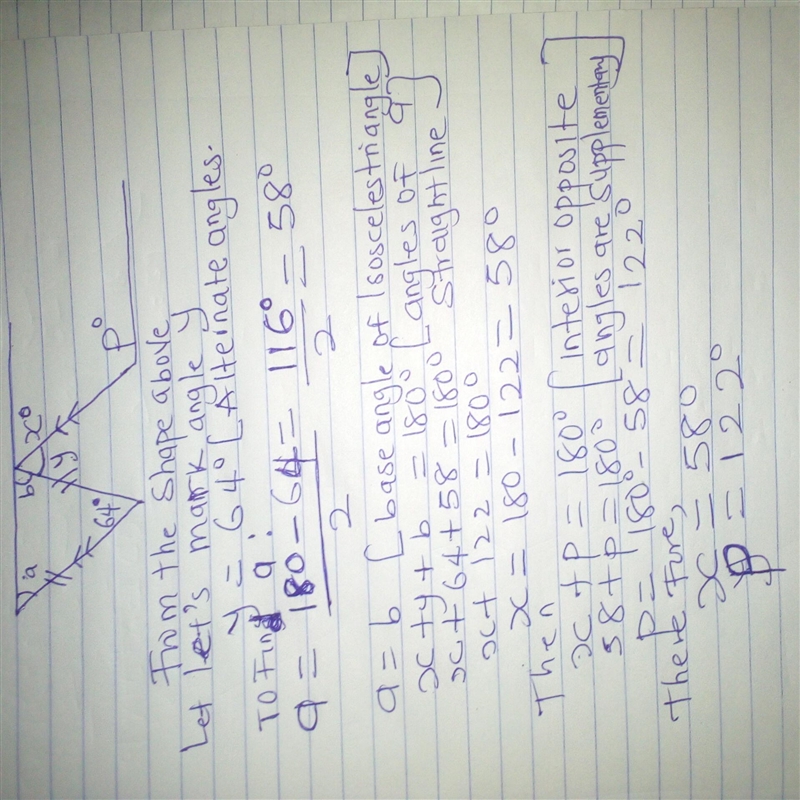 a
b
x°
y
64°
P°
From the Shape above
Let let's mark angle y
y = 64° [Alternate angles.
To Find a:
a = 180 - 64 = 116° = 58°
2 2
a = b [base angle of Isosceles triangle]
x + y + b = 180° [angles of a
x + 64 + 58 = 180° Straight line]
x + 122 = 180°
x = 180 - 122 = 58°
Then
x + P = 180° [Interior opposite
58 + P = 180° angles are Supplementary]
P = 180° - 58 = 122°
There fore,
x = 58°
P = 122°